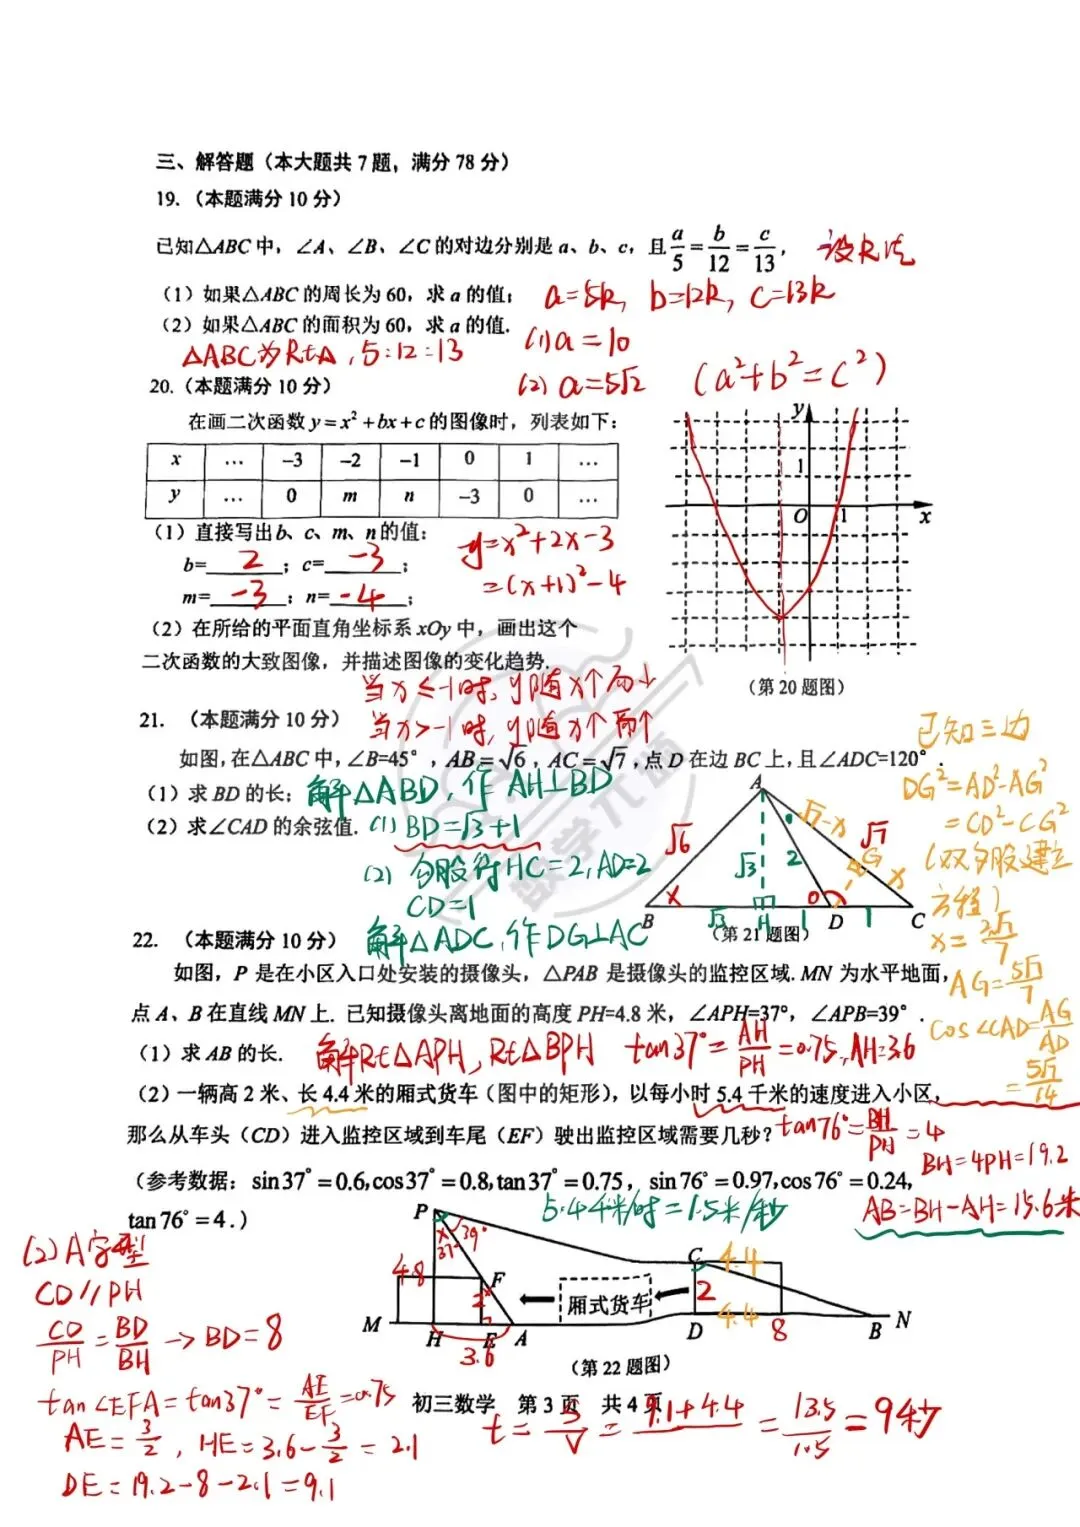 三、解答题（本大题共 7 题，满分 78 分）
19.（本题满分 10 分）
已知△ABC 中，∠A、∠B、∠C 的对边分别是 a、b、c，且 a/5 = b/12 = c/13， 设k法
（1）如果△ABC 的周长为 60，求 a 的值； a=5k, b=12k, c=13k
（2）如果△ABC 的面积为 60，求 a 的值. (1) a=10
△ABC为Rt△, 5:12:13
(2) a=5√2 (a²+b²=c²)
20.（本题满分 10 分）
在画二次函数 y=x²+bx+c 的图像时，列表如下：
x … −3 −2 −1 0 1 …
y … 0 m n −3 0 …
y 1 O 1 x
（1）直接写出b、c、m、n的值： y=x²+2x-3
b= 2 ；c= -3 ； =(x+1)²-4
m= -3 ；n= -4 ；
（2）在所给的平面直角坐标系 xOy 中，画出这个
二次函数的大致图像，并描述图像的变化趋势.
（第 20 题图）
当x≤-1时, y随x个而↓
当x>-1时, y随x个而个
21. （本题满分 10 分）
如图，在△ABC 中，∠B=45°，AB=√6，AC=√7，点 D 在边 BC 上，且∠ADC=120°.
（1）求 BD 的长； 解△ABD, 作AH⊥BD
（2）求∠CAD 的余弦值. (1) BD=√3+1
(2) 勾股得HC=2, AD=2
CD=1
解△ADC, 作DG⊥AC
A √7-x √7 √6 √3 2 G x
B √3 H 1 D 1 C
（第 21 题图）
已知三边
DG²=AD²-AG²
=CD²-CG²
(双勾股建立
方程)
x=2√7/7
AG=5√7/7
cos∠CAD=AG/AD
=5√7/14
22. （本题满分 10 分）
如图，P 是在小区入口处安装的摄像头，△PAB 是摄像头的监控区域. MN 为水平地面，
点 A、B 在直线 MN 上. 已知摄像头离地面的高度 PH=4.8 米，∠APH=37°，∠APB=39°.
（1）求 AB 的长. 解Rt△APH, Rt△BPH tan37°=AH/PH=0.75, AH=3.6
（2）一辆高 2 米、长 4.4 米的厢式货车（图中的矩形），以每小时 5.4 千米的速度进入小区，
那么从车头（CD）进入监控区域到车尾（EF）驶出监控区域需要几秒？ tan76°=BH/PH=4
BH=4PH=19.2
（参考数据：sin37°=0.6,cos37°=0.8,tan37°=0.75，sin76°=0.97,cos76°=0.24,
tan76°=4.） 5.4千米/时=1.5米/秒 AB=BH-AH=15.6米
P 37° 39° 4.8 F 2 C 4.4 2 4.4
厢式货车
M H E A D 8 B N
3.6
（第 22 题图）
(2) A字型
CD//PH
CD/PH=BD/BH→BD=8
tan∠EFA=tan37°=AE/EF=0.75
AE=3/2, HE=3.6-3/2=2.1
DE=19.2-8-2.1=9.1
初三数学 第 3 页 共 4 页
t=S/V=9.1+4.4/ =13.5/1.5=9秒
数学元题